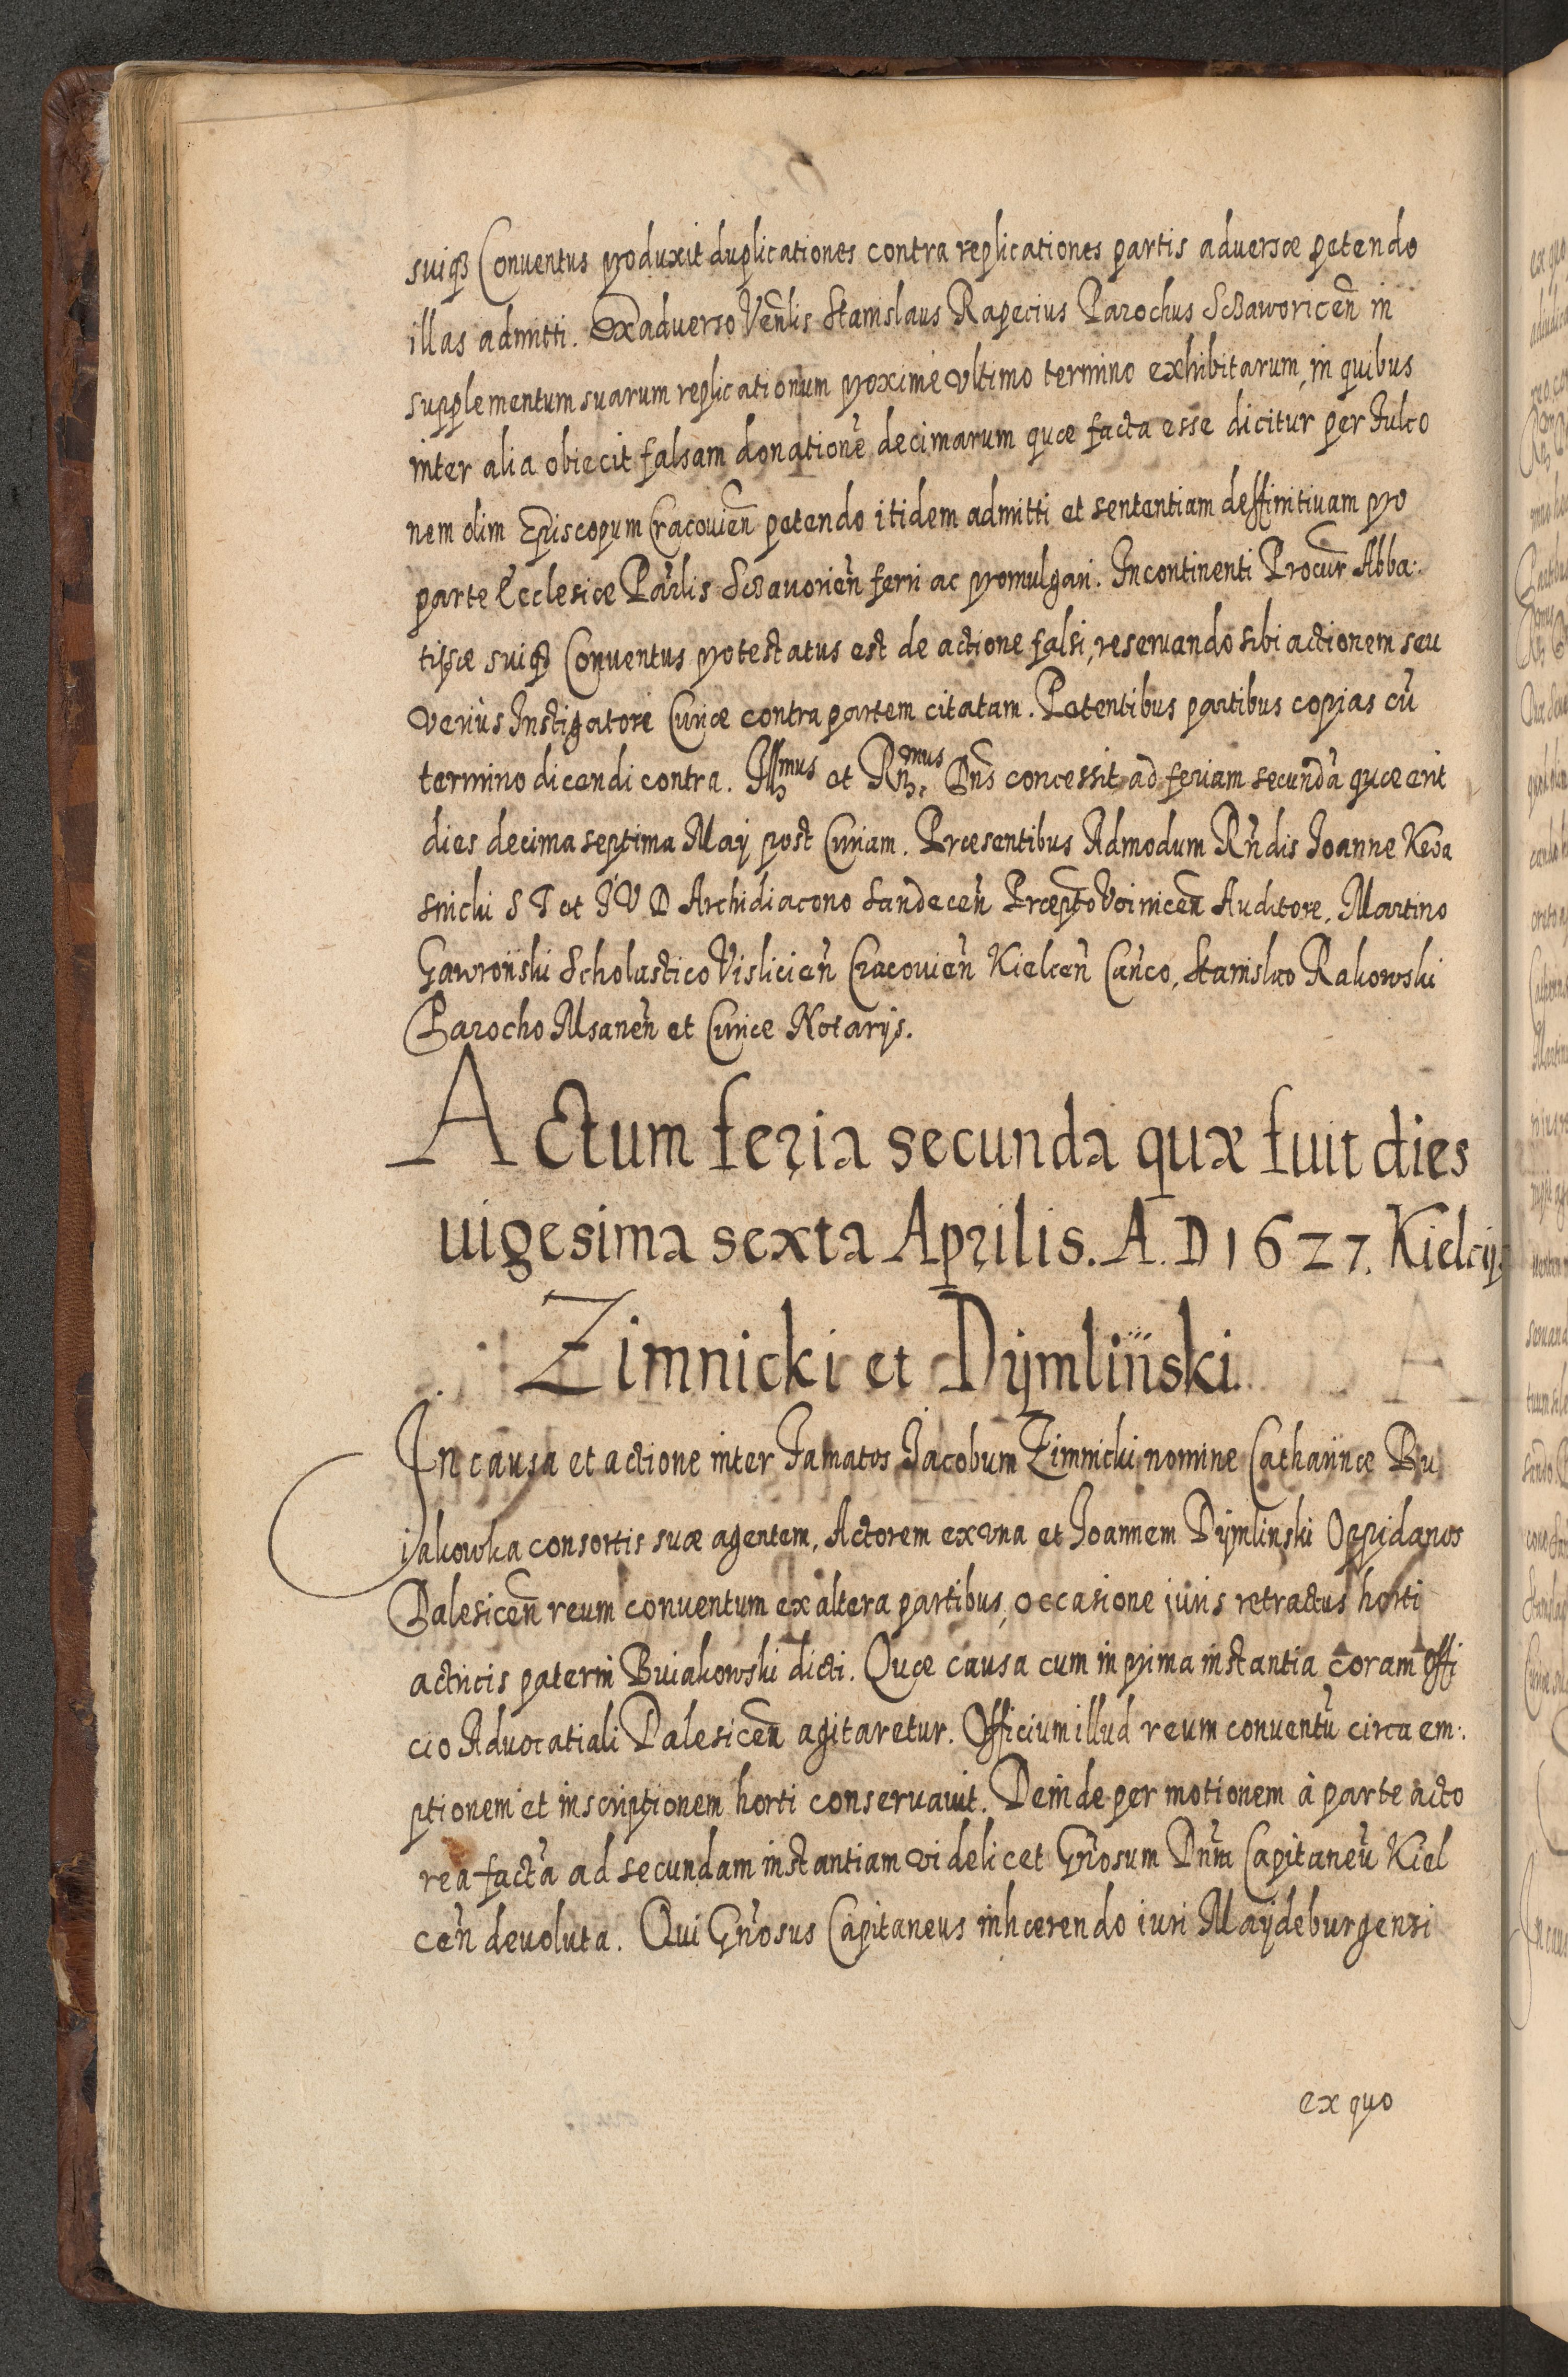 suiqȝ Conuentus produxit duplicationes contra replicationes partis aduersæ petendo
illas admitti. Ex aduerso Venlis Stanislaus Rapecius Parochus in
supplementum suarum replicationum proximè vltimo termino exhibitarum, in quibus
inter alia obiecit falsam donationē decimarum quæ facta esse dicitur per Fulco
nem olim Episcopum Cracouien̄ petendo itidem admitti et sententiam deffinitiuam pro
parte Ecclesiæ Parlis ferri ac promulgari. Incontinenti Procur̄ Abba:
tissæ suiqȝ Conuentus protestatus est de actione falsi, reseruando sibi actionem seu
veriùs Instigatori Curiæ contra partem citatam. Petentibus partibus copias cū
termino dicendi contra. Illmus et Rn̄mus Dn̄s concessit ad feriam secundā quæ erit
dies decima septima Maij post Curiam. Præsentibus Admodum Rn̄dis Joanne
S T et I V D Archidiacono Sandecen̄ Præpto Voinicen̄ Auditore, Martino
Gawroński Scholastico Vislicien̄ Cracouien̄ Kielcen̄ Can̄co, Stanislao Rakowski
Parocho Msanen̄ et Curiæ Notarijs.
Actum feria secunda quæ fuit dies
uigesima sexta Aprilis. A. D 1627. Kielcijs
Zimnicki et Dÿmliński
In causa et actione inter Famatos Jacobum Zimnicki nomine Catharinæ Bu
iakowka consortis suæ agentem, Actorem ex vna et Joannem Dÿmlinski Oppidanos
Dalesicen̄ reum conuentum ex altera partibus, occasione iuris retractus horti
actricis paterni Buiakowski dicti. Quæ causa cum in prima instantia coram offi
cio Aduocatiali Dalesicen̄ agitaretur. Officium illud reum conuentū circa em:
ptionem et inscriptionem horti conseruauit. Deinde per motionem à parte acto
rea factā ad secundam instantiam videlicet Gn̄osum Dn̄m Capitaneū Kiel
cen̄ deuoluta. Qui Gn̄osus Capitaneus inhærendo iuri Maÿdeburgensi
ex quo